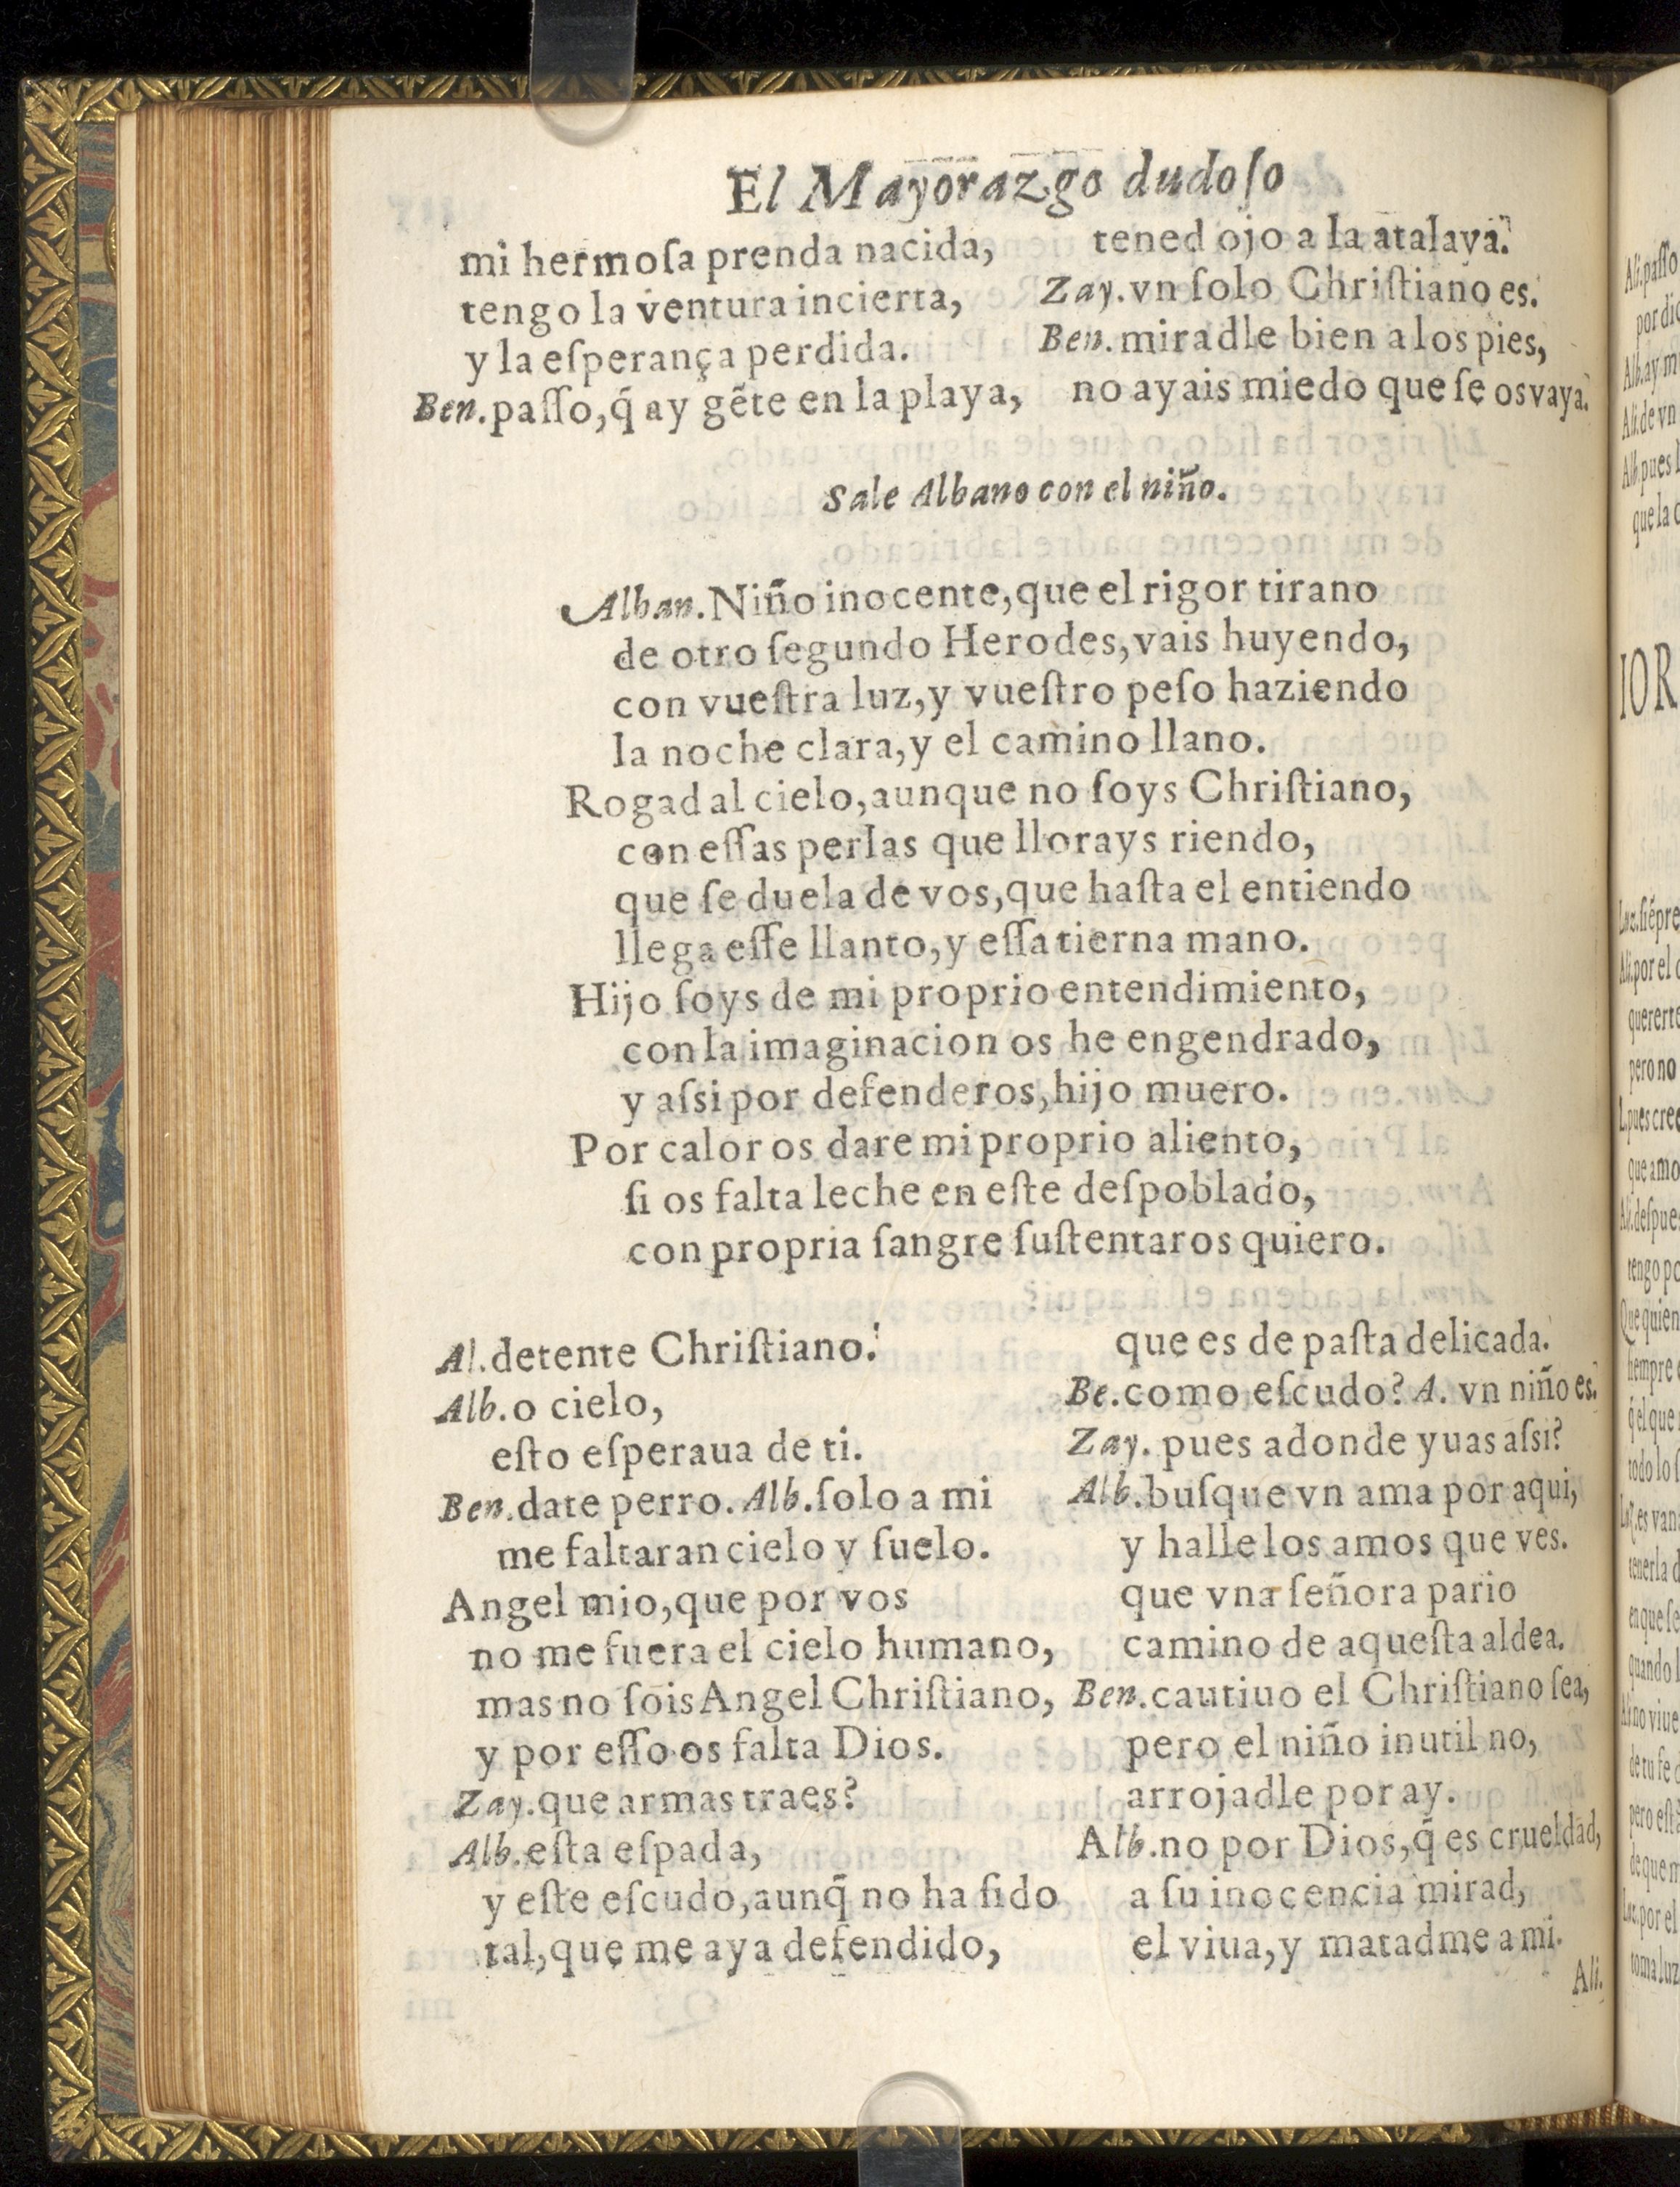 El Mayorazgo dudoſo
mi hermoſa prenda nacida,
tengo la ventura incierta,
y la eſperança perdida.
Ben. paſſo, q̃ ay gẽte en la playa,
tened ojo a la atalaya.
Zay. vn ſolo Chriſtiano es.
Ben. miradle bien a los pies,
no ayais miedo que ſe os vaya.
Sale Albano con el niño.
Alban. Niño inocente, que el rigor tirano
de otro ſegundo Herodes, vais huyendo,
con vueſtra luz, y vueſtro peſo haziendo
la noche clara, y el camino llano.
Rogad al cielo, aunque no ſoys Chriſtiano,
con eſſas perlas que llorays riendo,
que ſe duela de vos, que haſta el entiendo
llega eſſe llanto, y eſſa tierna mano.
Hijo ſoys de mi proprio entendimiento,
con la imaginacion os he engendrado,
y aſsi por defenderos, hijo muero.
Por calor os dare mi proprio aliento,
ſi os falta leche en eſte deſpoblado,
con propria ſangre ſuſtentaros quiero.
Al. detente Chriſtiano.
Alb. o cielo,
eſto eſperaua de ti.
Ben. date perro. Alb. ſolo a mi
me faltaran cielo y ſuelo.
Angel mio, que por vos
no me fuera el cielo humano,
mas no ſois Angel Chriſtiano,
y por eſſo os falta Dios.
Zay. que armas traes?
Alb. eſta eſpada,
y eſte eſcudo, aunq̃ no ha ſido
tal, que me aya defendido,
que es de paſta delicada.
Be. como eſcudo? A. vn niño es.
Zay. pues adonde yuas aſsi?
Alb. buſque vn ama por aqui,
y halle los amos que ves.
que vna ſeñora pario
camino de aqueſta aldea.
Ben. cautiuo el Chriſtiano ſea,
pero el niño inutil no,
arrojadle por ay.
Alb. no por Dios, q̃ es crueldad,
a ſu inocencia mirad,
el viua, y matadme a mi.
Ali.
Ali. paſſo
Alb. ay m
Ali. de vn
Alb. pues l
que la c
IOR
Luz. ſiẽpre
Ali. por el c
quererte
pero no
L. pues cree
que amo
Ali. deſpue
tengo po
Que quien
q̃ el que
todo lo ſ
Luz. es van
tenerla d
en que ſe
quando l
Ali. no viue
de tu fe c
pero eſtà
de que m
Luz. por el
toma luz